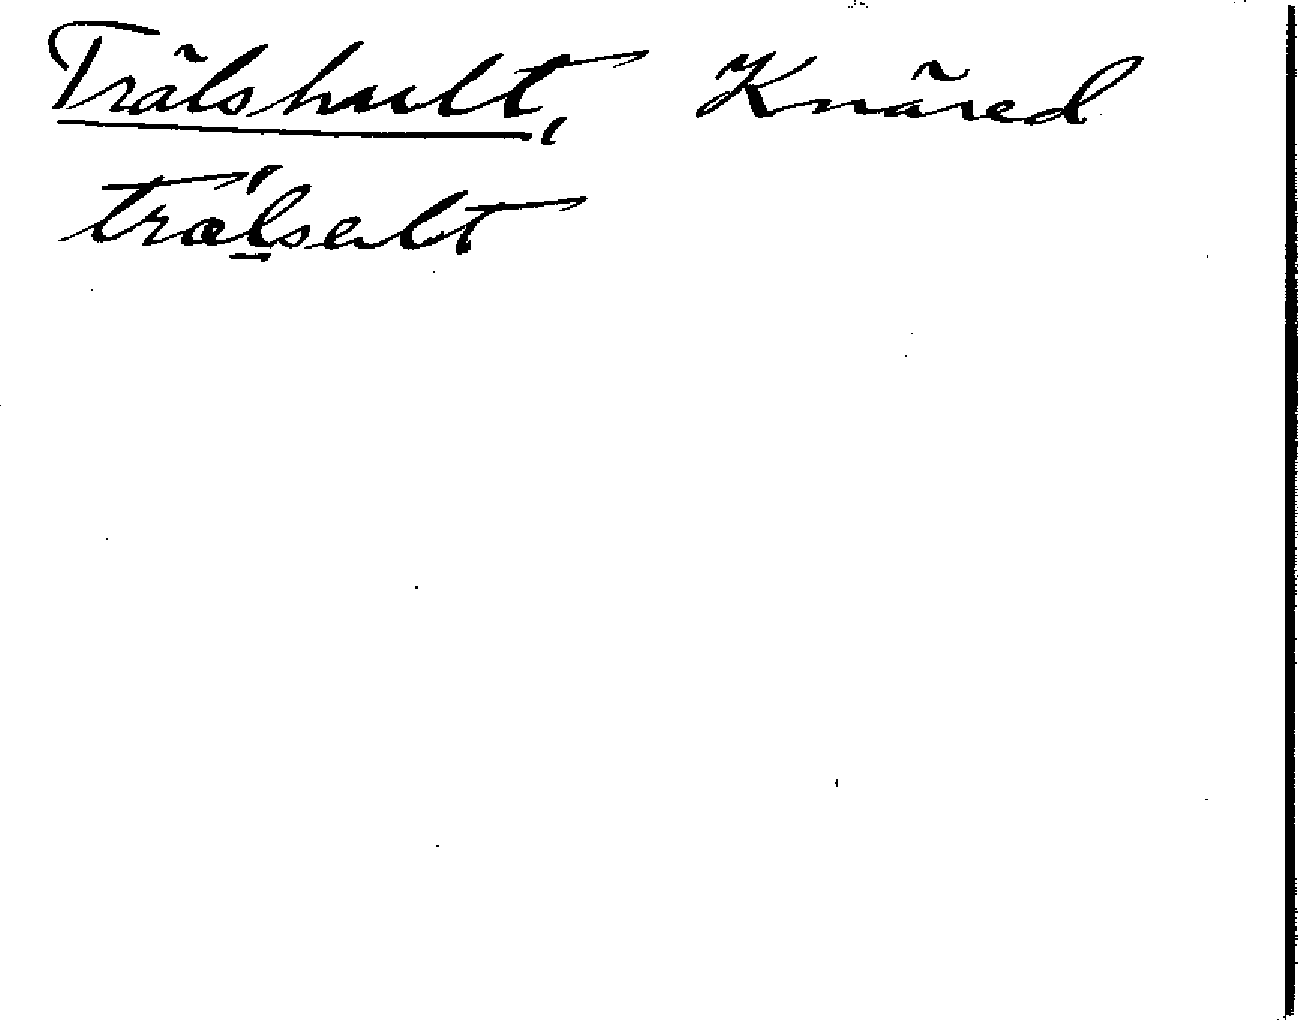 Trälshult, Knäred
trälselt